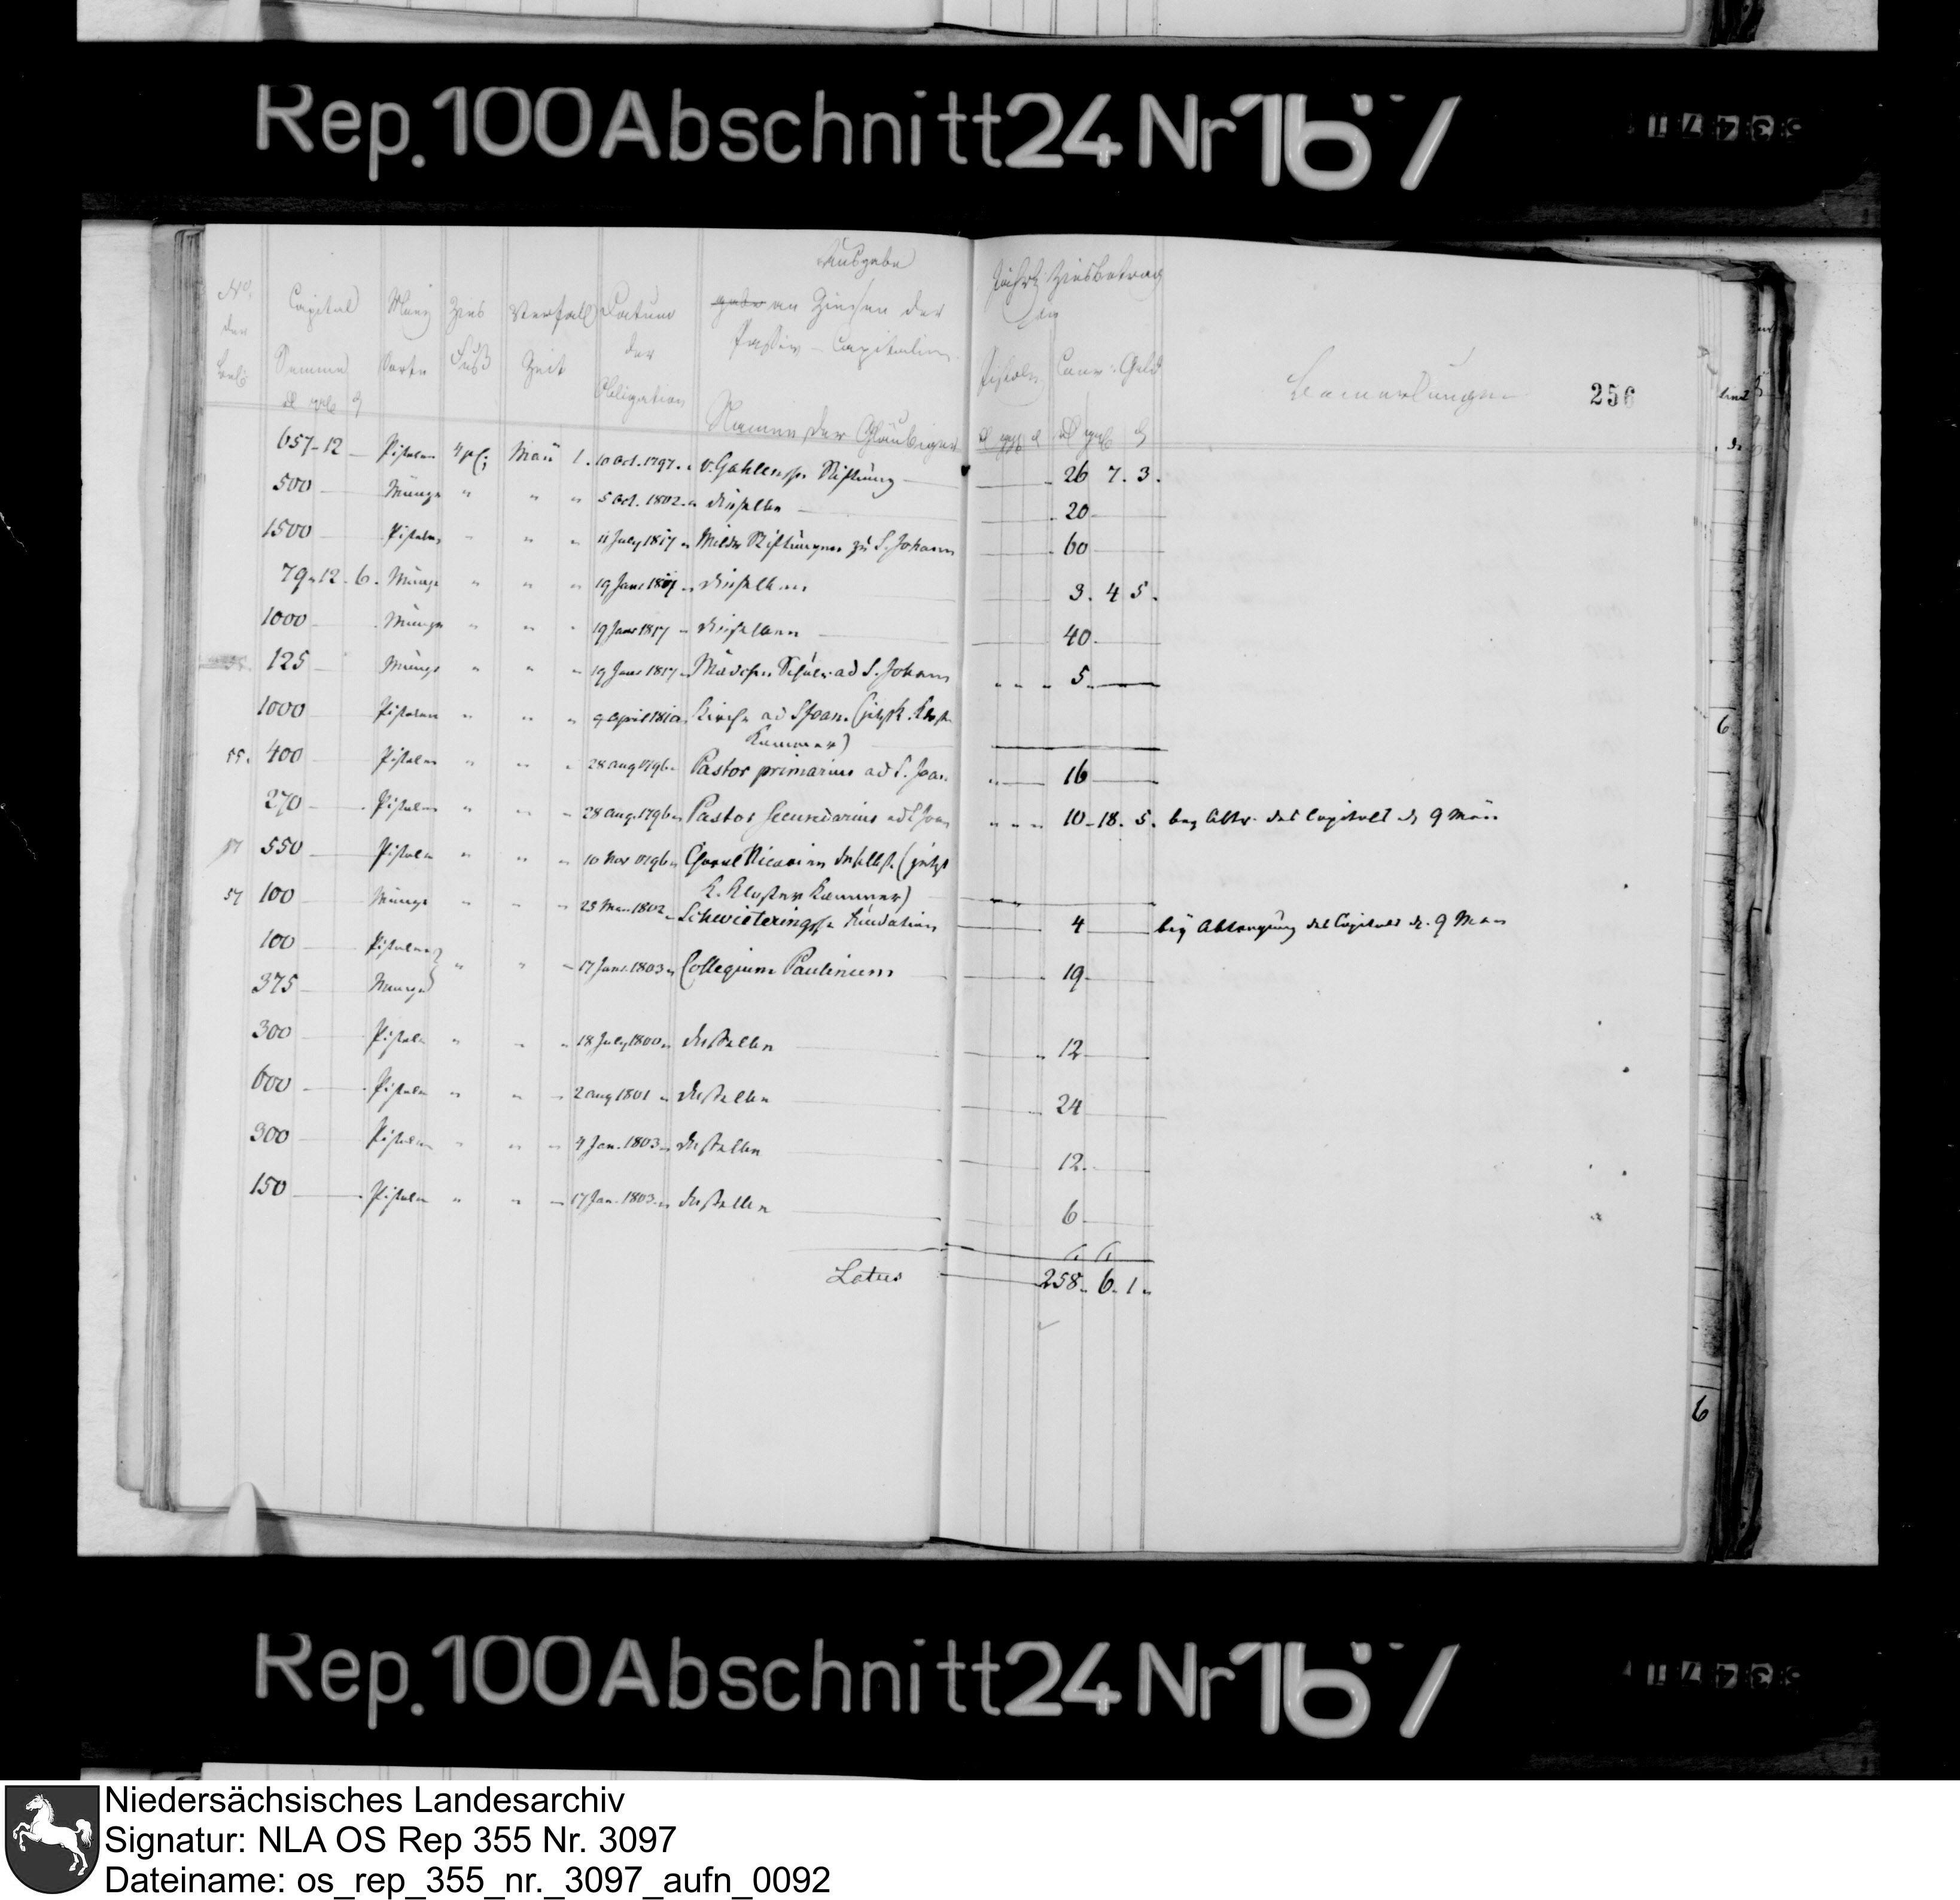 Rep. 100 Abschnitt 24 Nr 167
Ausgabe
an Zinsen der
Passiv-Capitalien
No. der Capital Münz Zins Verfall Datum Jährl. Zinsbetrag
Summe Sorte Fuß Zeit der in
Obligation Namen der Gläubiger Pistolen Conv. Geld Bemerkungen 256
657-12 Pistolen 4 pC; Mai 1. 10 Oct. 1797. v. Gahlensche Stiftung 26 7. 3.
500 Münze " " " 5 Oct. 1802. dieselbe 20
1500 Pistolen " " " 11 July 1817 Milde Stiftungen zu S. Johann 60
79-12-6. Münze " " " 19 Janr 1817 dieselben 3. 4 5.
1000 Münze " " " 19 Janr 1817 dieselben 40
125 Münze " " " 19 Janr 1817 Mädchen Schule ad S. Johann 5
1000 Pistolen " " " 9 April 1810 Kirche ad S Joan. (jetzt K. Kloster
Kammer)
55. 400 Pistolen " " " 28 Aug 1796 Pastor primarius ad S. Joan. 16
270 Pistolen " " " 28 Aug. 1796 Pastor Secundarius ad S Joan 10-18. 5. bey Abtr. des Capitals
550 Pistolen " " " 10 Nov 1796 (jetzt
K. Kloster Kammer)
57 100 Münze " " " 1802 Schwieteringsche Fundation 4 bey des Capitals
100 Pistolen }
375 Münze } " " " 17 Janr. 1803 Collegium Paulinum 19
300 Pistolen " " " 18 July 1800 dasselbe 12
600 Pistolen " " " 2 Aug 1801 dasselbe 24
300 Pistolen " " " 4 Jan. 1803 dasselbe 12.
150 Pistolen " " " 17 Jan. 1803 dasselbe 6
Latus 258. 6. 1.
6
6
Rep. 100 Abschnitt 24 Nr 167
Niedersächsisches Landesarchiv
Signatur: NLA OS Rep 355 Nr. 3097
Dateiname: os_rep_355_nr._3097_aufn_0092